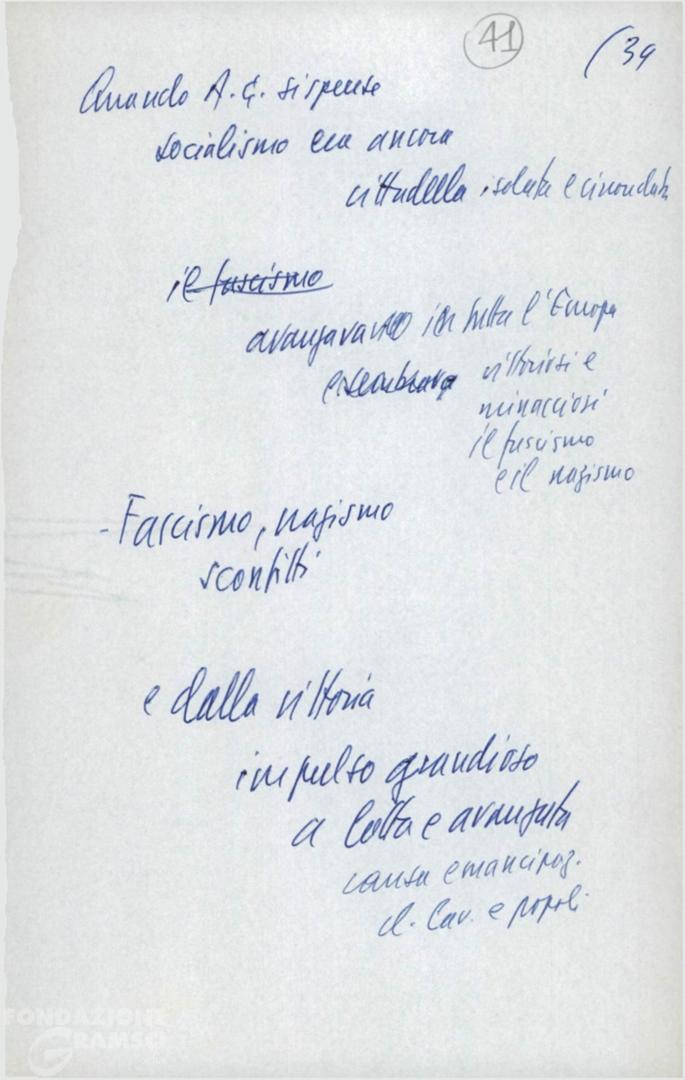 41
(39
Quando A. G. si spense
socialismo era ancora
cittadella isolata e circondata
il fascismo
avanzavano in tutta l'Europa
e sembrava vittoriosi e
minacciosi
il fascismo
e il nazismo
- Fascismo, nazismo
sconfitti
e dalla vittoria
impulso grandioso
a lotta e avanzata
causa emancipaz.
d. lav. e popoli
FONDAZIONE
GRAMSCI